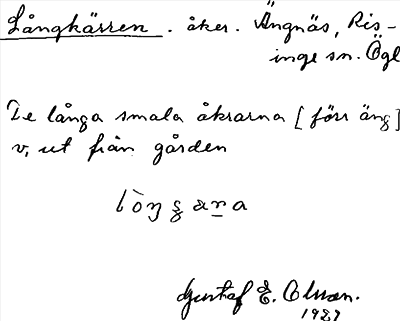 Långkärren . åker. Ängnäs, Ris-
inge sn. Ögl
De långa smala åkrarna [förr äng]
v, ut från gården
Gustaf E. Olsson.